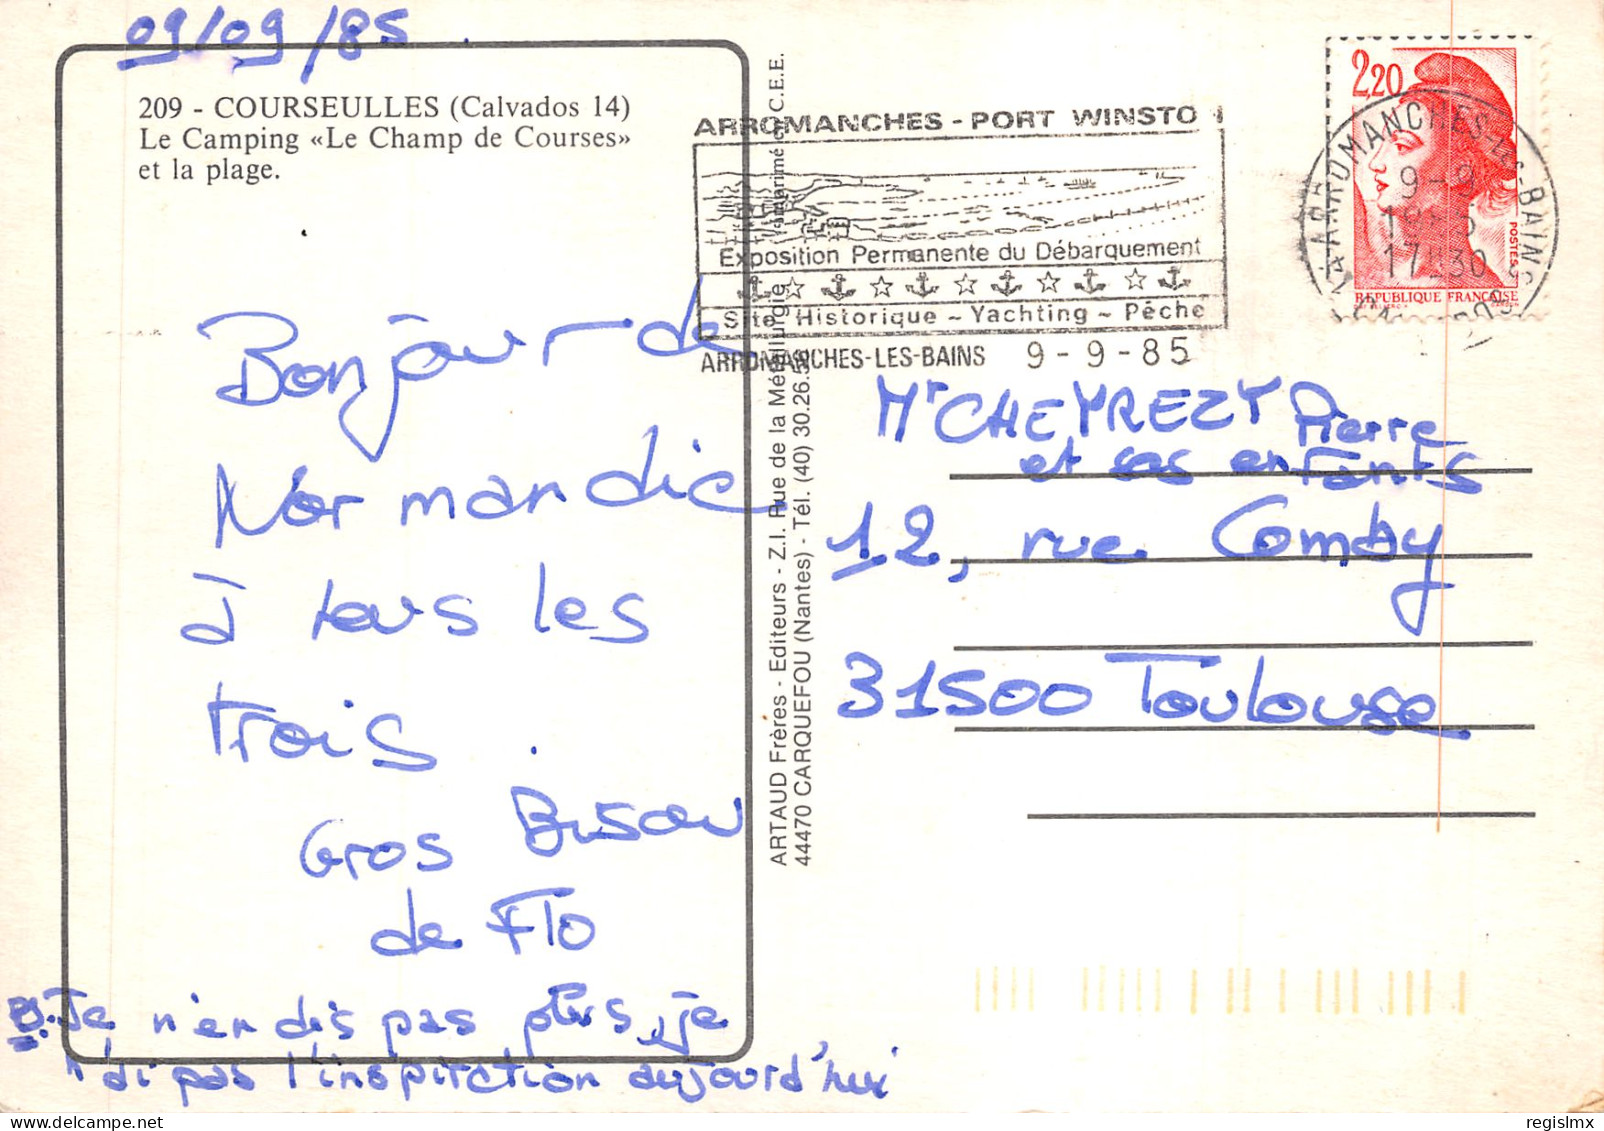 09/09/85
209 - COURSEULLES (Calvados 14)
Le Camping «Le Champ de Courses»
et la plage.
Bonjour de
Normandie
à tous les
trois.
Gros Bisou
de Flo
Je n'en dis pas plus, je
n'ai pas l'inspiration aujourd'hui
ARTAUD Frères - Editeurs - Z.I. Rue de la Métallurgie
44470 CARQUEFOU (Nantes) - Tél. (40) 30.26.5
Imprimé C.E.E.
ARROMANCHES - PORT WINSTO
Exposition Permanente du Débarquement
Site Historique ~ Yachting ~ Pêche
ARROMANCHES-LES-BAINS 9-9-85
2,20
POSTES
REPUBLIQUE FRANÇAISE
ARROMANCHES-LES-BAINS
9-9
1985
17H30
Mr CHEYREZY Pierre
et ses enfants
12, rue Comby
31500 Toulouse
regislmx